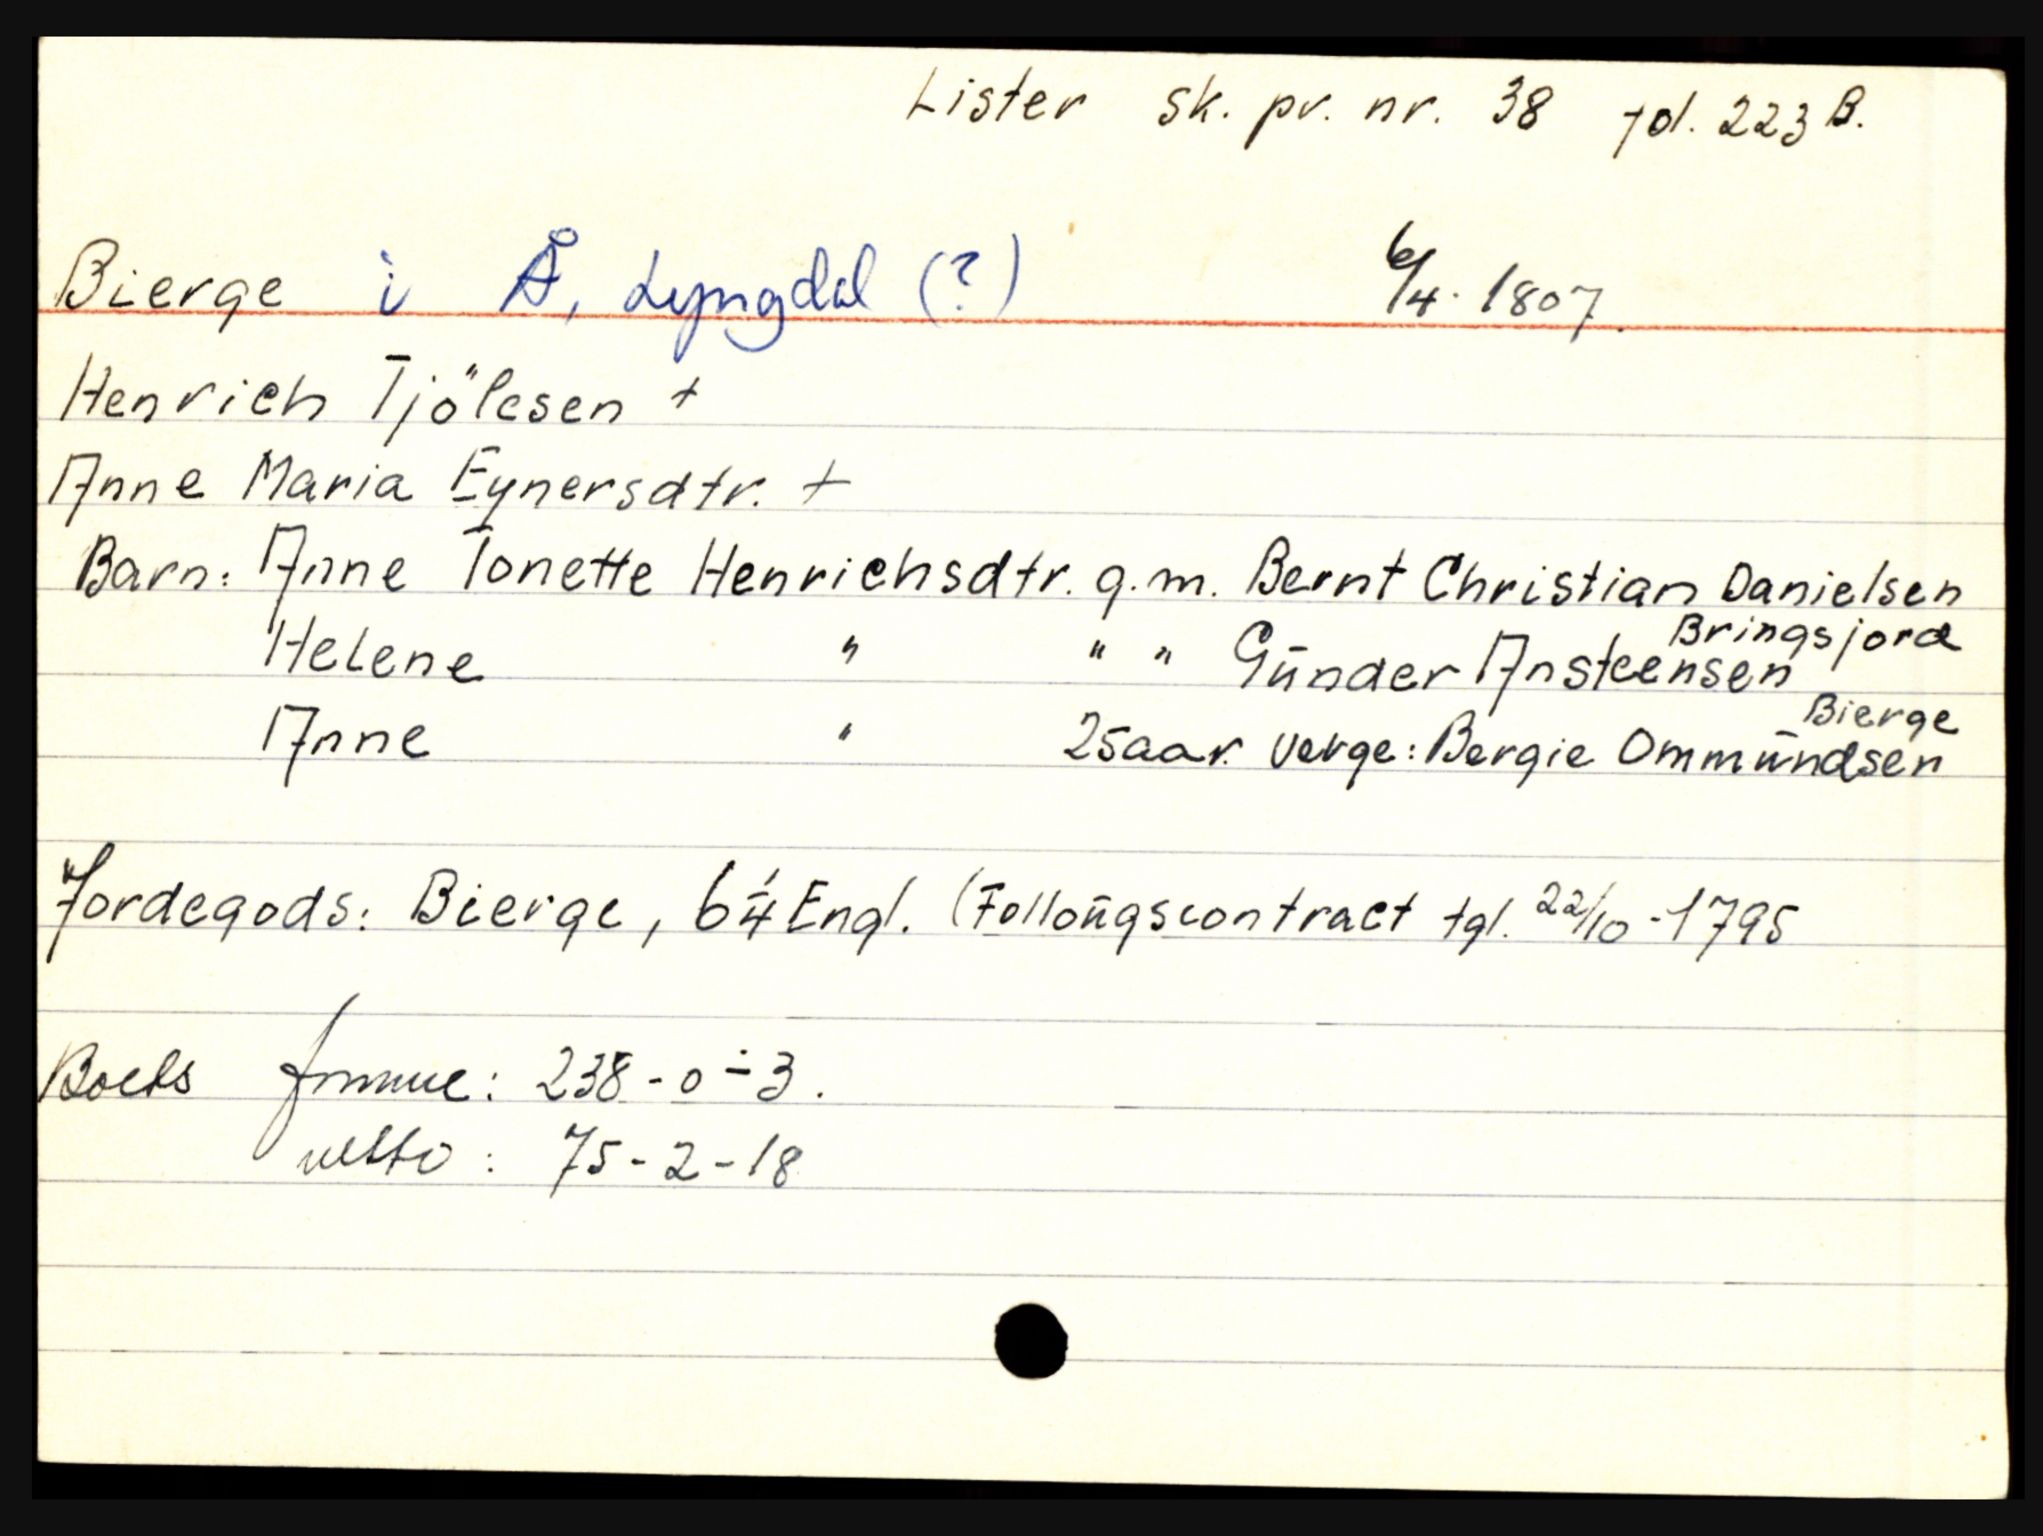 Lister sk. pr. nr. 38 fol. 223 B.
Bierge i Å, Lyngdal (?) 6/4. 1807.
Henrich Tjölesen +
Anne Maria Eynersdtr. +
Barn: Anne Tonette Henrichsdtr. g.m. Bernt Christian Danielsen
Bringsjord
Helene " " " Günder Ansteensen
Bierge
Anne " 25 aar. verge: Bergie Ommündsen
Jordegods: Bierge, 6 1/4 Engl. (Følloügscontract tgl. 22/10 - 1795
Boets formue: 238 - 0 ÷ 3.
netto: 75 - 2 - 18